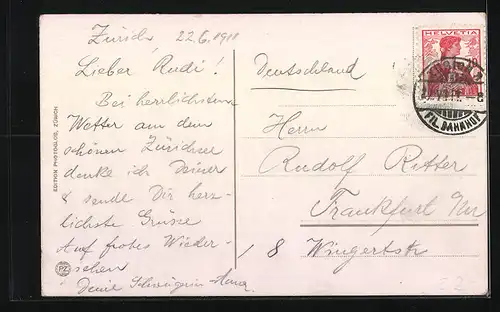 Zürich 22.6.1911
Lieber Rudi!
Bei herrlichstem
Wetter an dem
schönen Züricher
denke ich Deiner
& sende Dir herz-
lichste Grüsse
Auf frohes Wieder-
sehen
Deine
Deutschland
Herrn
Rudolf Ritter
Frankfurt a/M
8 Wingertstr
HELVETIA
FIL. BAHNHOF
EDITION PHOTOGLOB, ZÜRICH
PZ